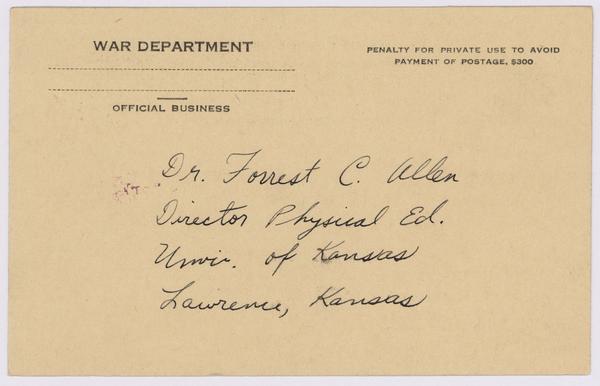 WAR DEPARTMENT
OFFICIAL BUSINESS
PENALTY FOR PRIVATE USE TO AVOID
PAYMENT OF POSTAGE, $300
Dr. Forrest C. Allen
Director Physical Ed.
Univ. of Kansas
Lawrence, Kansas